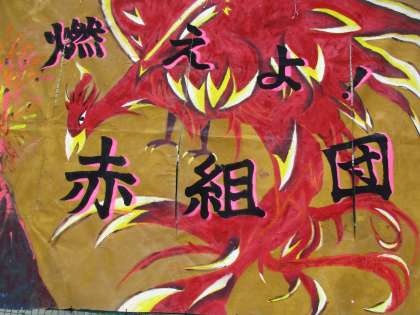 燃えよ!
赤組団